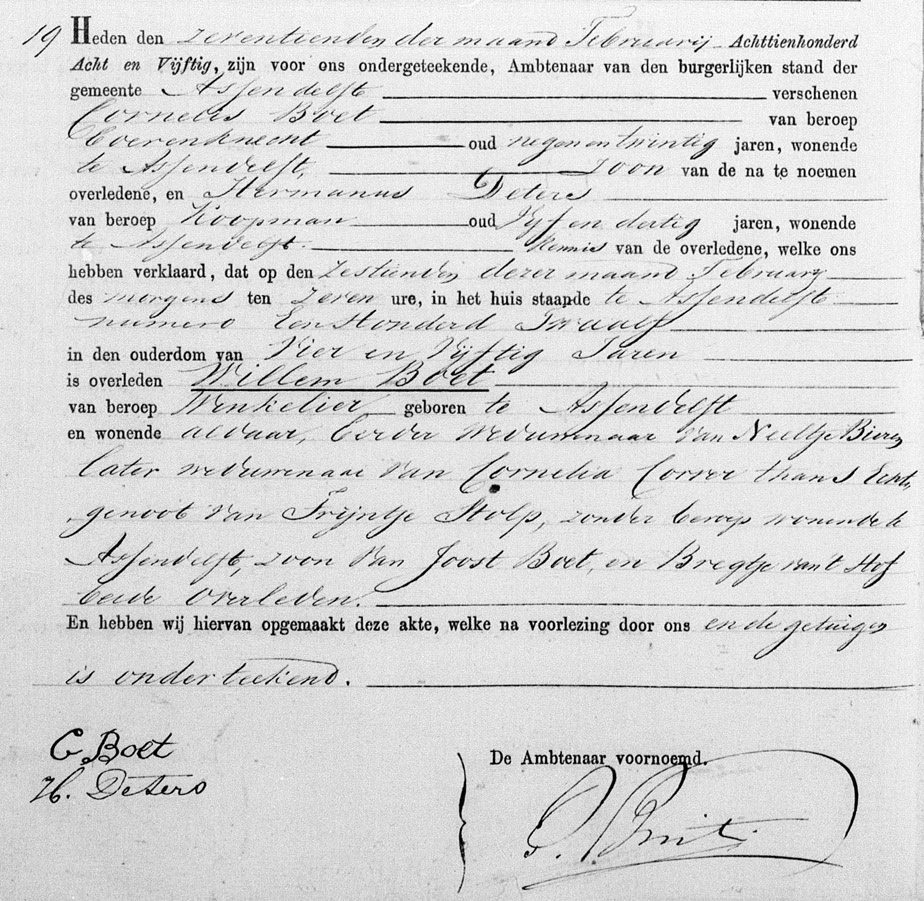 19 Heden den zeventienden der maand Februarij Achttienhonderd
Acht en Vijftig, zijn voor ons ondergeteekende, Ambtenaar van den burgerlijken stand der
gemeente Assendelft verschenen
Cornelis Boet van beroep
Boerenknecht oud negenentwintig jaren, wonende
te Assendelft, Zoon van de na te noemen
overledene, en Hermanus Deters
van beroep Koopman oud Vijf en dertig jaren, wonende
te Assendelft. Kennis van de overledene, welke ons
hebben verklaard, dat op den zestienden dezer maand February
des morgens ten zeven ure, in het huis staande te Assendelft
numero Een Honderd Twaalf
in den ouderdom van Vier en Vijftig Jaren
is overleden Willem Boet
van beroep Winkelier geboren te Assendelft
en wonende aldaar, Eerder weduwenaar van Neeltje
later weduwenaar van Cornelia Correr thans Echt,
genoot van Trijntje Stolp, zonder beroep wonende te
Assendelft, zoon van Joost Boet, en Bregtje van't Hof
beide overleden.
En hebben wij hiervan opgemaakt deze akte, welke na voorlezing door ons en de getuigen
is onderteekend.
C. Boet
H. Deters
De Ambtenaar voornoemd.